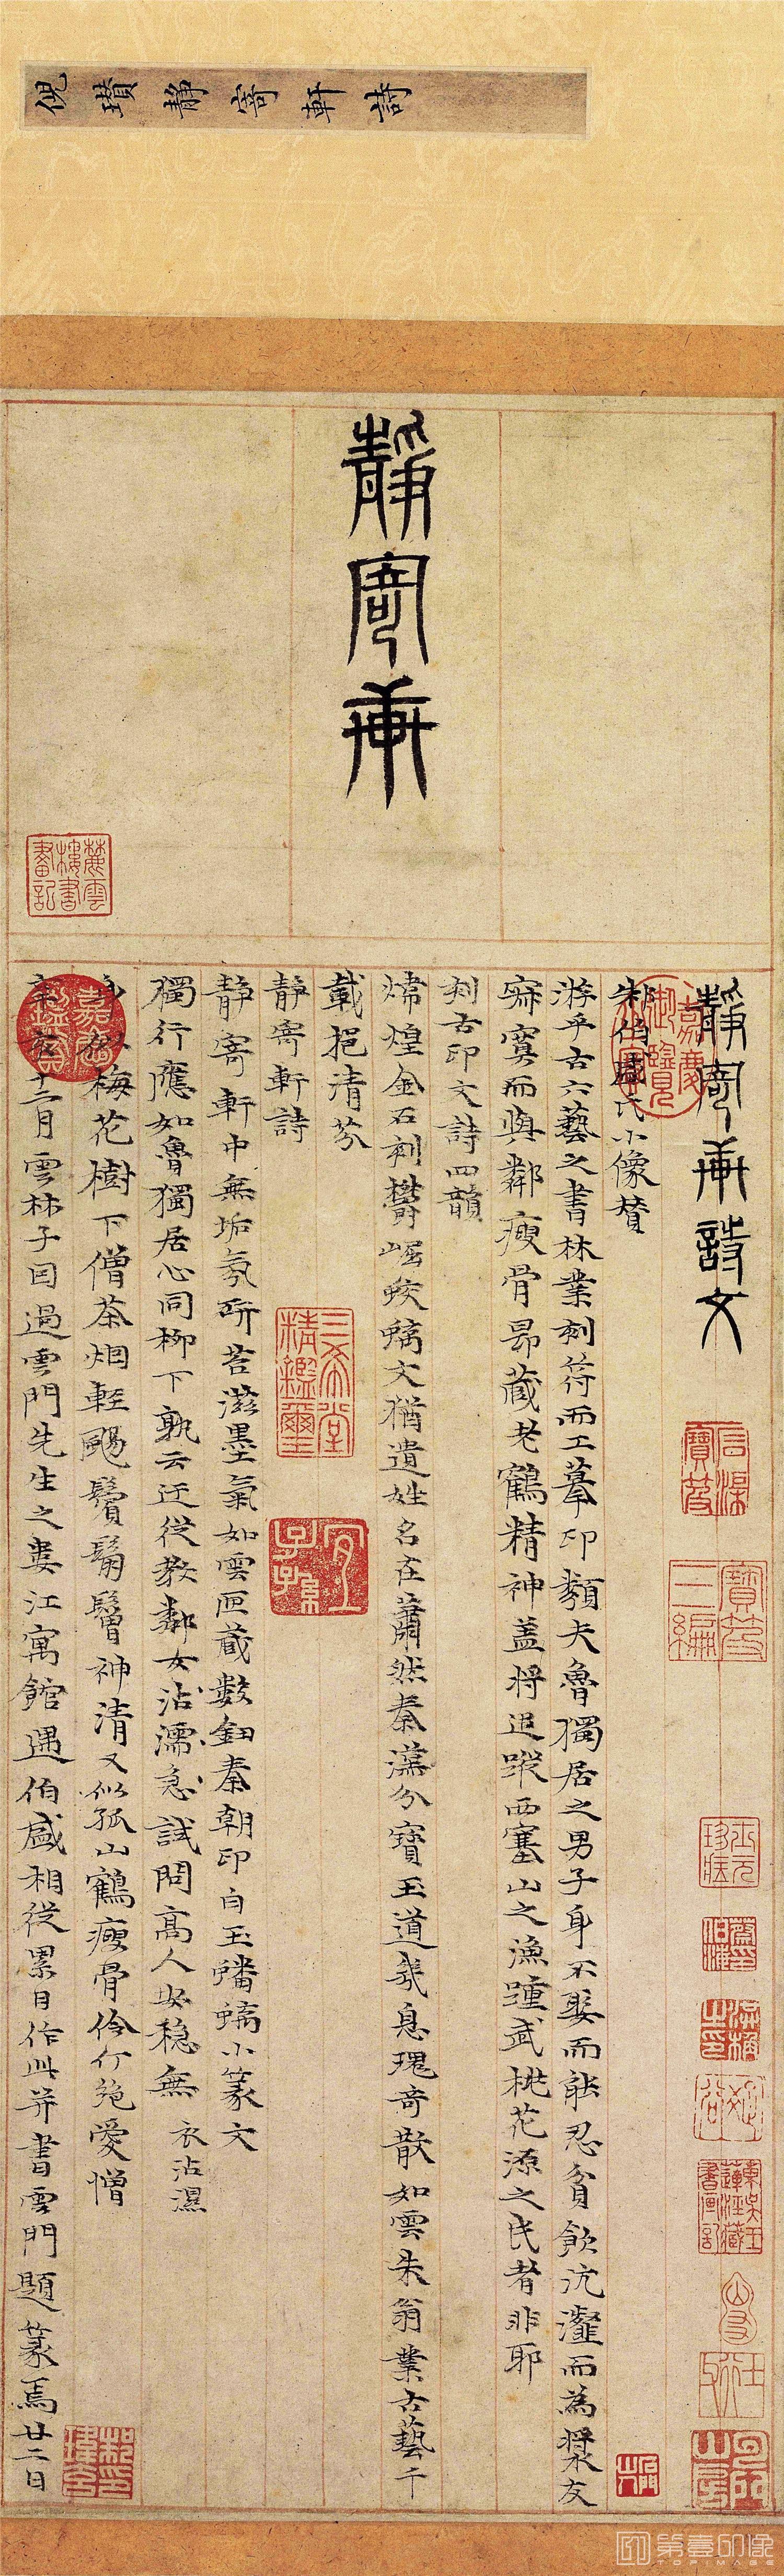 倪瓚靜寄軒詩
靜寄軒
靜寄軒詩文
朱伯盛氏小像贊
游乎古六藝之書林業刻符而工摹印類夫魯獨居之男子身不娶而能忍貧飲沆瀣而為漿友
寂寞而與鄰瘦骨昂藏老鶴精神蓋將追蹤西塞山之漁踵武桃花源之民者非耶
刻古印文詩四韻
煒煌金石刻鬱崛蛟螭文猶遺姓名在蕭然秦漢分寶玉道哉息瑰奇散如雲朱翁業古藝千
載挹清芬
靜寄軒詩
靜寄軒中無垢氛研苔滋墨氣如雲匣藏數鈕秦朝印白玉蟠螭小篆文
獨行應如魯獨居心同柳下孰云迂從教鄰女沾濡急試問高人安穩無 衣沾濕
身似梅花樹下僧茶烟輕颺鬢鬅鬙神清又似孤山鶴瘦骨伶仃絕愛憎
辛亥十二月雲林子因過雲門先生之婁江寓館遇伯盛相從累日作此并書雲門題篆焉廿二日
嘉慶御覽之寶
嘉慶鑑賞
三希堂精鑑璽
宜子孫
石渠寶笈
寶笈三編
麓雲樓書畫記
第壹印像
TOP IMAGE